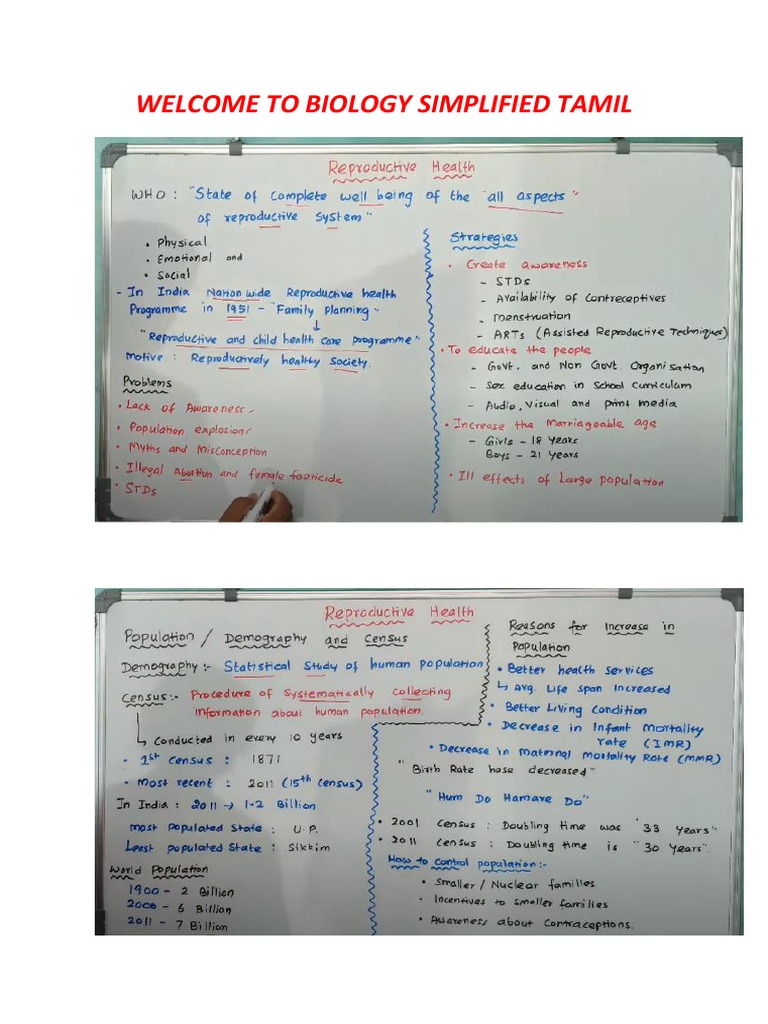 WELCOME TO BIOLOGY SIMPLIFIED TAMIL
Reproductive Health
WHO : "State of complete well being of the "all aspects"
of reproductive system"
• Physical
• Emotional and
• Social
- In India Nation wide Reproductive health
Programme in 1951 - "Family Planning"
↓
"Reproductive and child health care programme"
Motive : Reproductively healthy Society.
Problems
• Lack of Awareness
• Population explosion
• Myths and Misconception
• Illegal abortion and female foeticide
• STDs
Strategies
• Create awareness
- STDs
- Availability of contraceptives
- menstruation
- ARTs (Assisted Reproductive Techniques)
• To educate the people
- Govt. and Non Govt. Organisation
- Sex education in School Curriculum
- Audio, Visual and print media
• Increase the Marriageable age
- Girls - 18 years
Boys - 21 years
• Ill effects of Large population
Reproductive Health
Population / Demography and Census
Demography :- Statistical Study of human population
Census :- Procedure of Systematically collecting
information about human population.
↳ Conducted in every 10 years
• 1st Census : 1871
• Most recent : 2011 (15th Census)
In India : 2011 → 1.2 Billion
Most Populated State : U.P.
Least populated State : Sikkim
World Population
1900 - 2 Billion
2000 - 6 Billion
2011 - 7 Billion
Reasons for Increase in
Population
• Better health services
↳ Avg. Life span Increased
• Better Living Condition
• Decrease in Infant Mortality
rate (IMR)
• Decrease in Maternal Mortality Rate (MMR)
"Birth Rate hase decreased"
"Hum Do Hamare Do"
• 2001 Census : Doubling time was "33 years"
• 2011 Census : Doubling time is "30 years"
How to control population :-
• Smaller / Nuclear families
• Incentives to smaller families
• Awareness about contraceptions.